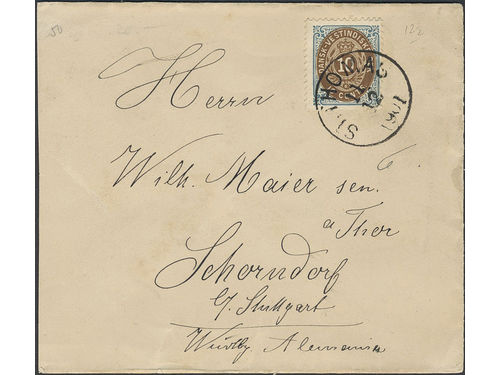 50
20-
122
DANSK-VESTINDISKE
10
CENTS
ST. THOMAS
12
Herrn
Wilh. Maier sen.
a Thor
Schorndorf
b/ Stuttgart
Württbg Alemania